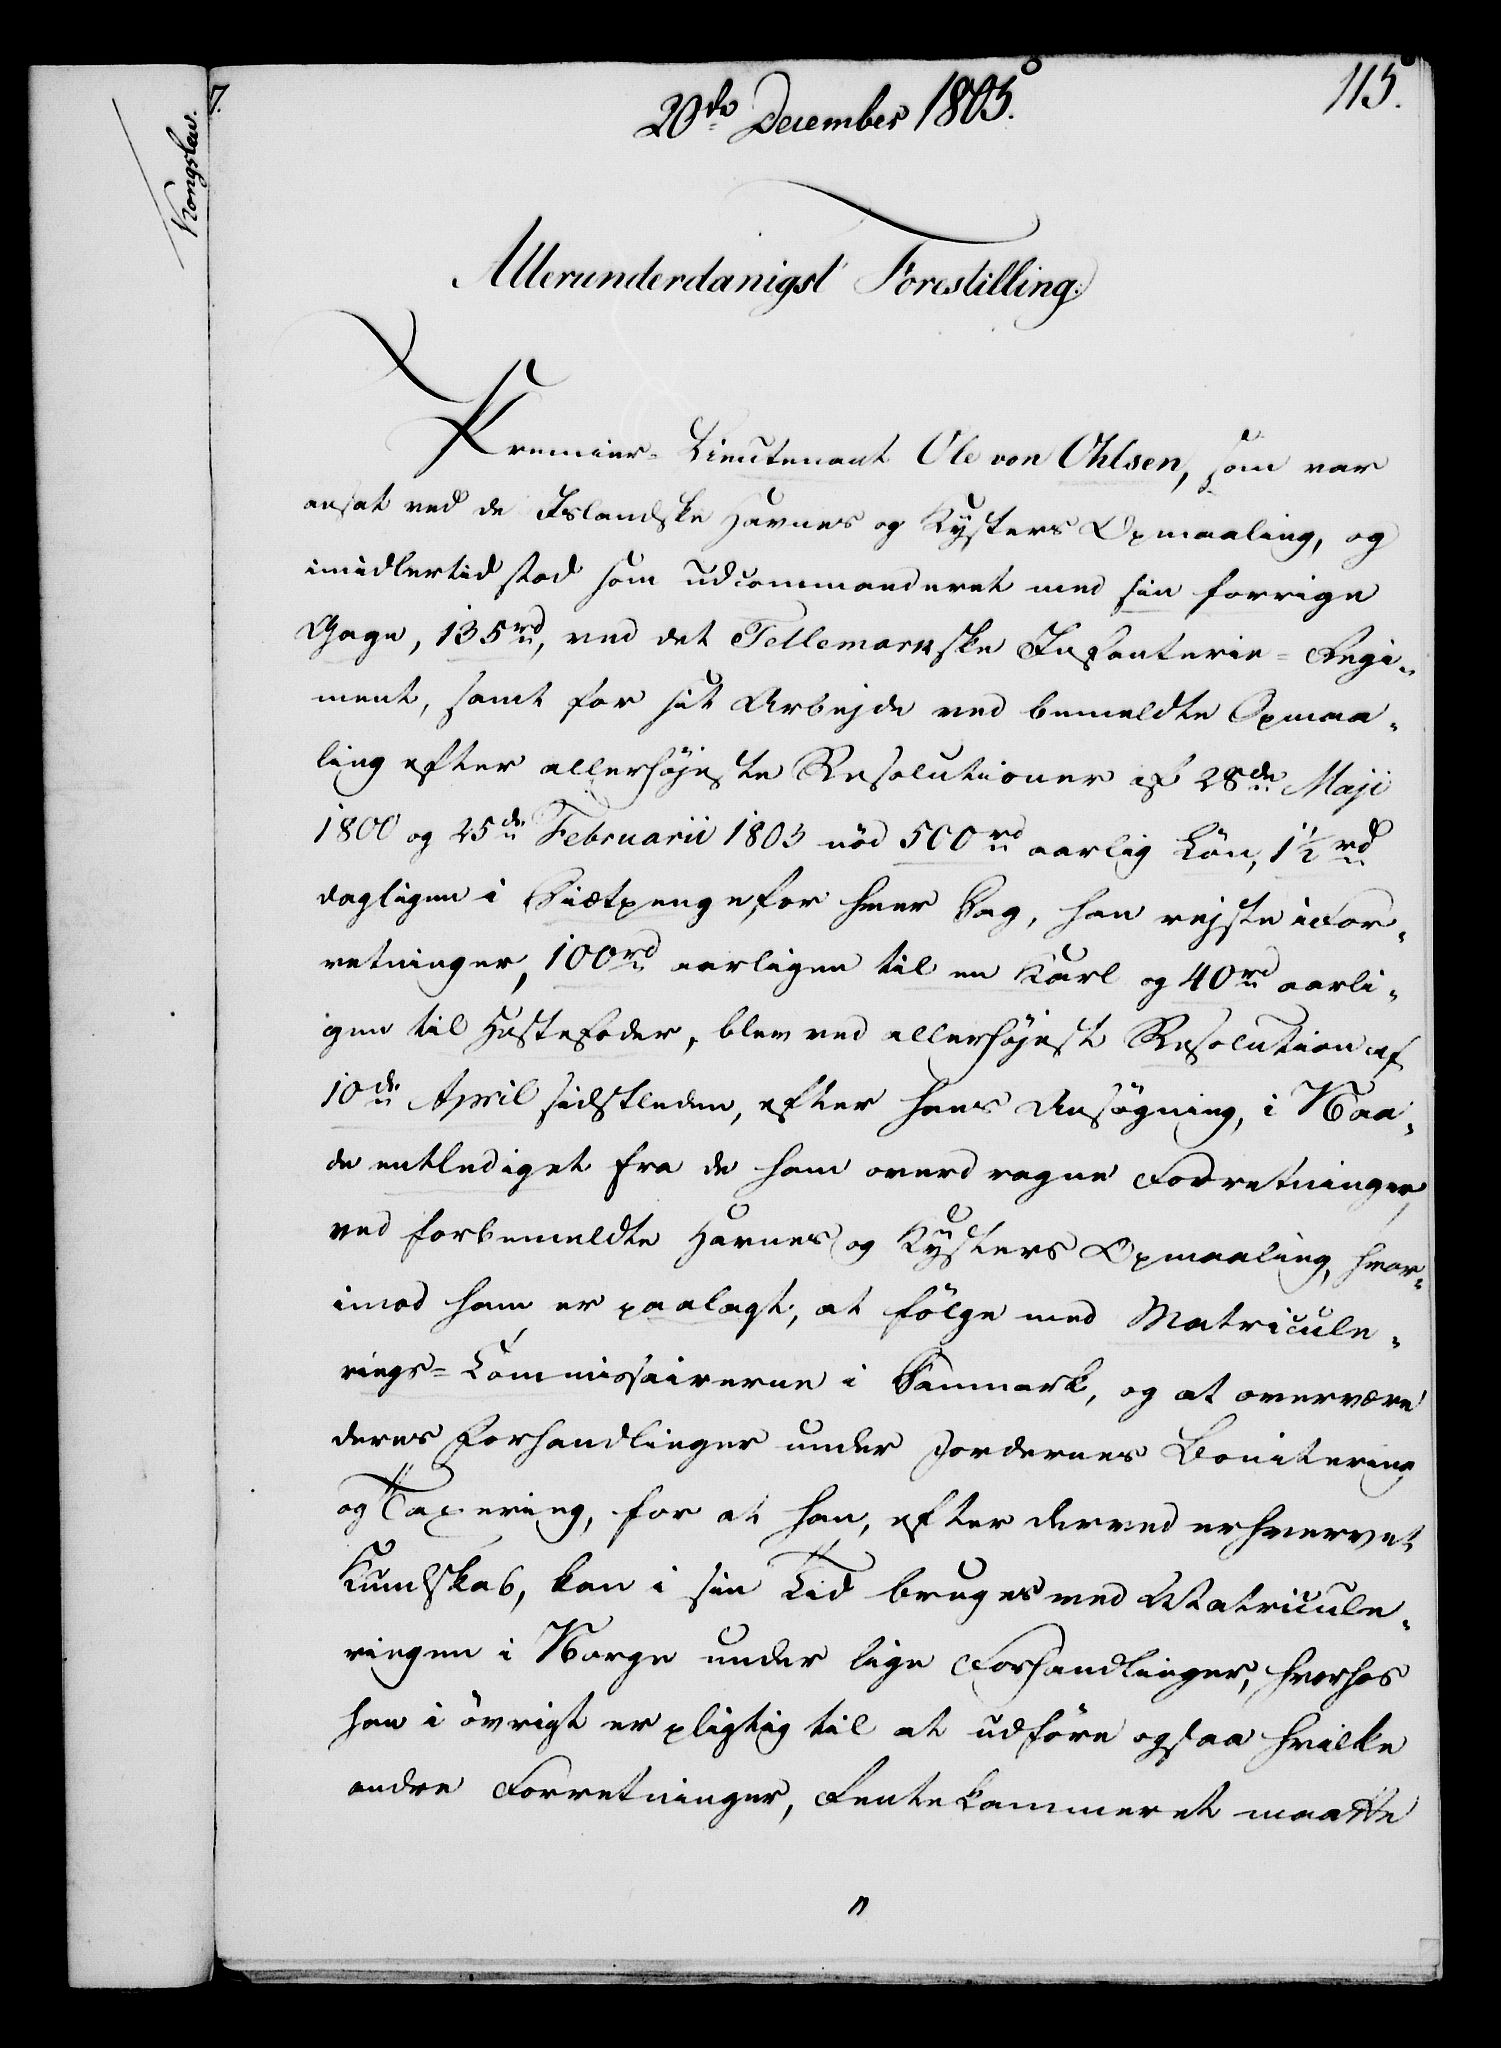 115.
20de December 1805.
Kongslew.
Allerunderdanigst Forestilling.
Premier-Lieutenant Ole von Ohlsen, som var
ansat ved de Islandske Havnes og Kysters Opmaaling, og
imidlertid stod som udcommanderet med sin forrige
Gage, 135 rd, ved det Tellemarkske Infanterie-Regi-
ment, samt for sit Arbejde ved bemeldte Opmaa-
ling efter allerhøjeste Resolutioner af 28de Maji
1800 og 25de Februarii 1803 nöd 500 rd aarlig Lön, 1½ rd
dagligen i Diætpenge, for hver Dag, han rejste i For-
retninger, 100 rd aarligen til en Karl og 40 rd aarli-
gen til Hestefoder, blev ved allerhøjest Resolution af
10de April sidstleden, efter hans Ansögning, i Naa-
de entlediget fra de ham overdragne Forretninger
ved forbemeldte Havnes og Kysters Opmaaling, hvor-
imod ham er paalagt, at fölge med Matricule-
rings-Commissairerne i Danmark, og at overvære
deres Forhandlinger under Jordernes Bonitering
og Taxering, for at han, efter derved erhvervet
Kundskab, kan i sin Tid bruges ved Matricule-
ringen i Norge under lige Forhandlinger, hvorhos
han i övrigt er pligtig til at udföre ogsaa hvilke
andre Forretninger, Rentekammeret maatte